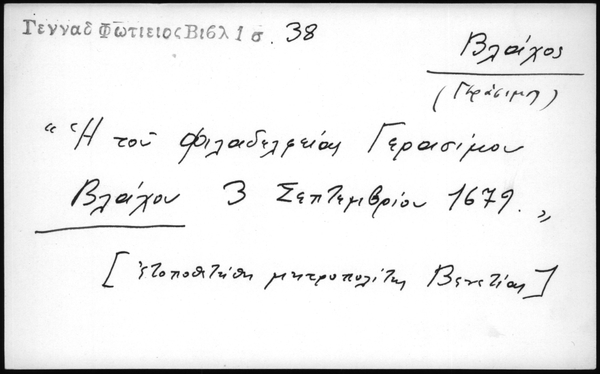 Γενναδ Φωτιειος Βιβλ 1 σ. 38
Βλάχος
(Γεράσιμος)
“Ἡ τοῦ Φιλαδελφείας Γερασίμου
Βλάχου 3 Σεπτεμβρίου 1679.„
[ἐτοποθετήθη μητροπολίτης Βενετίας]